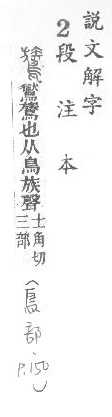 說文解字
2段注本
鷟鸑鷟也从鳥族聲士角切三部(鳥部,p.150)